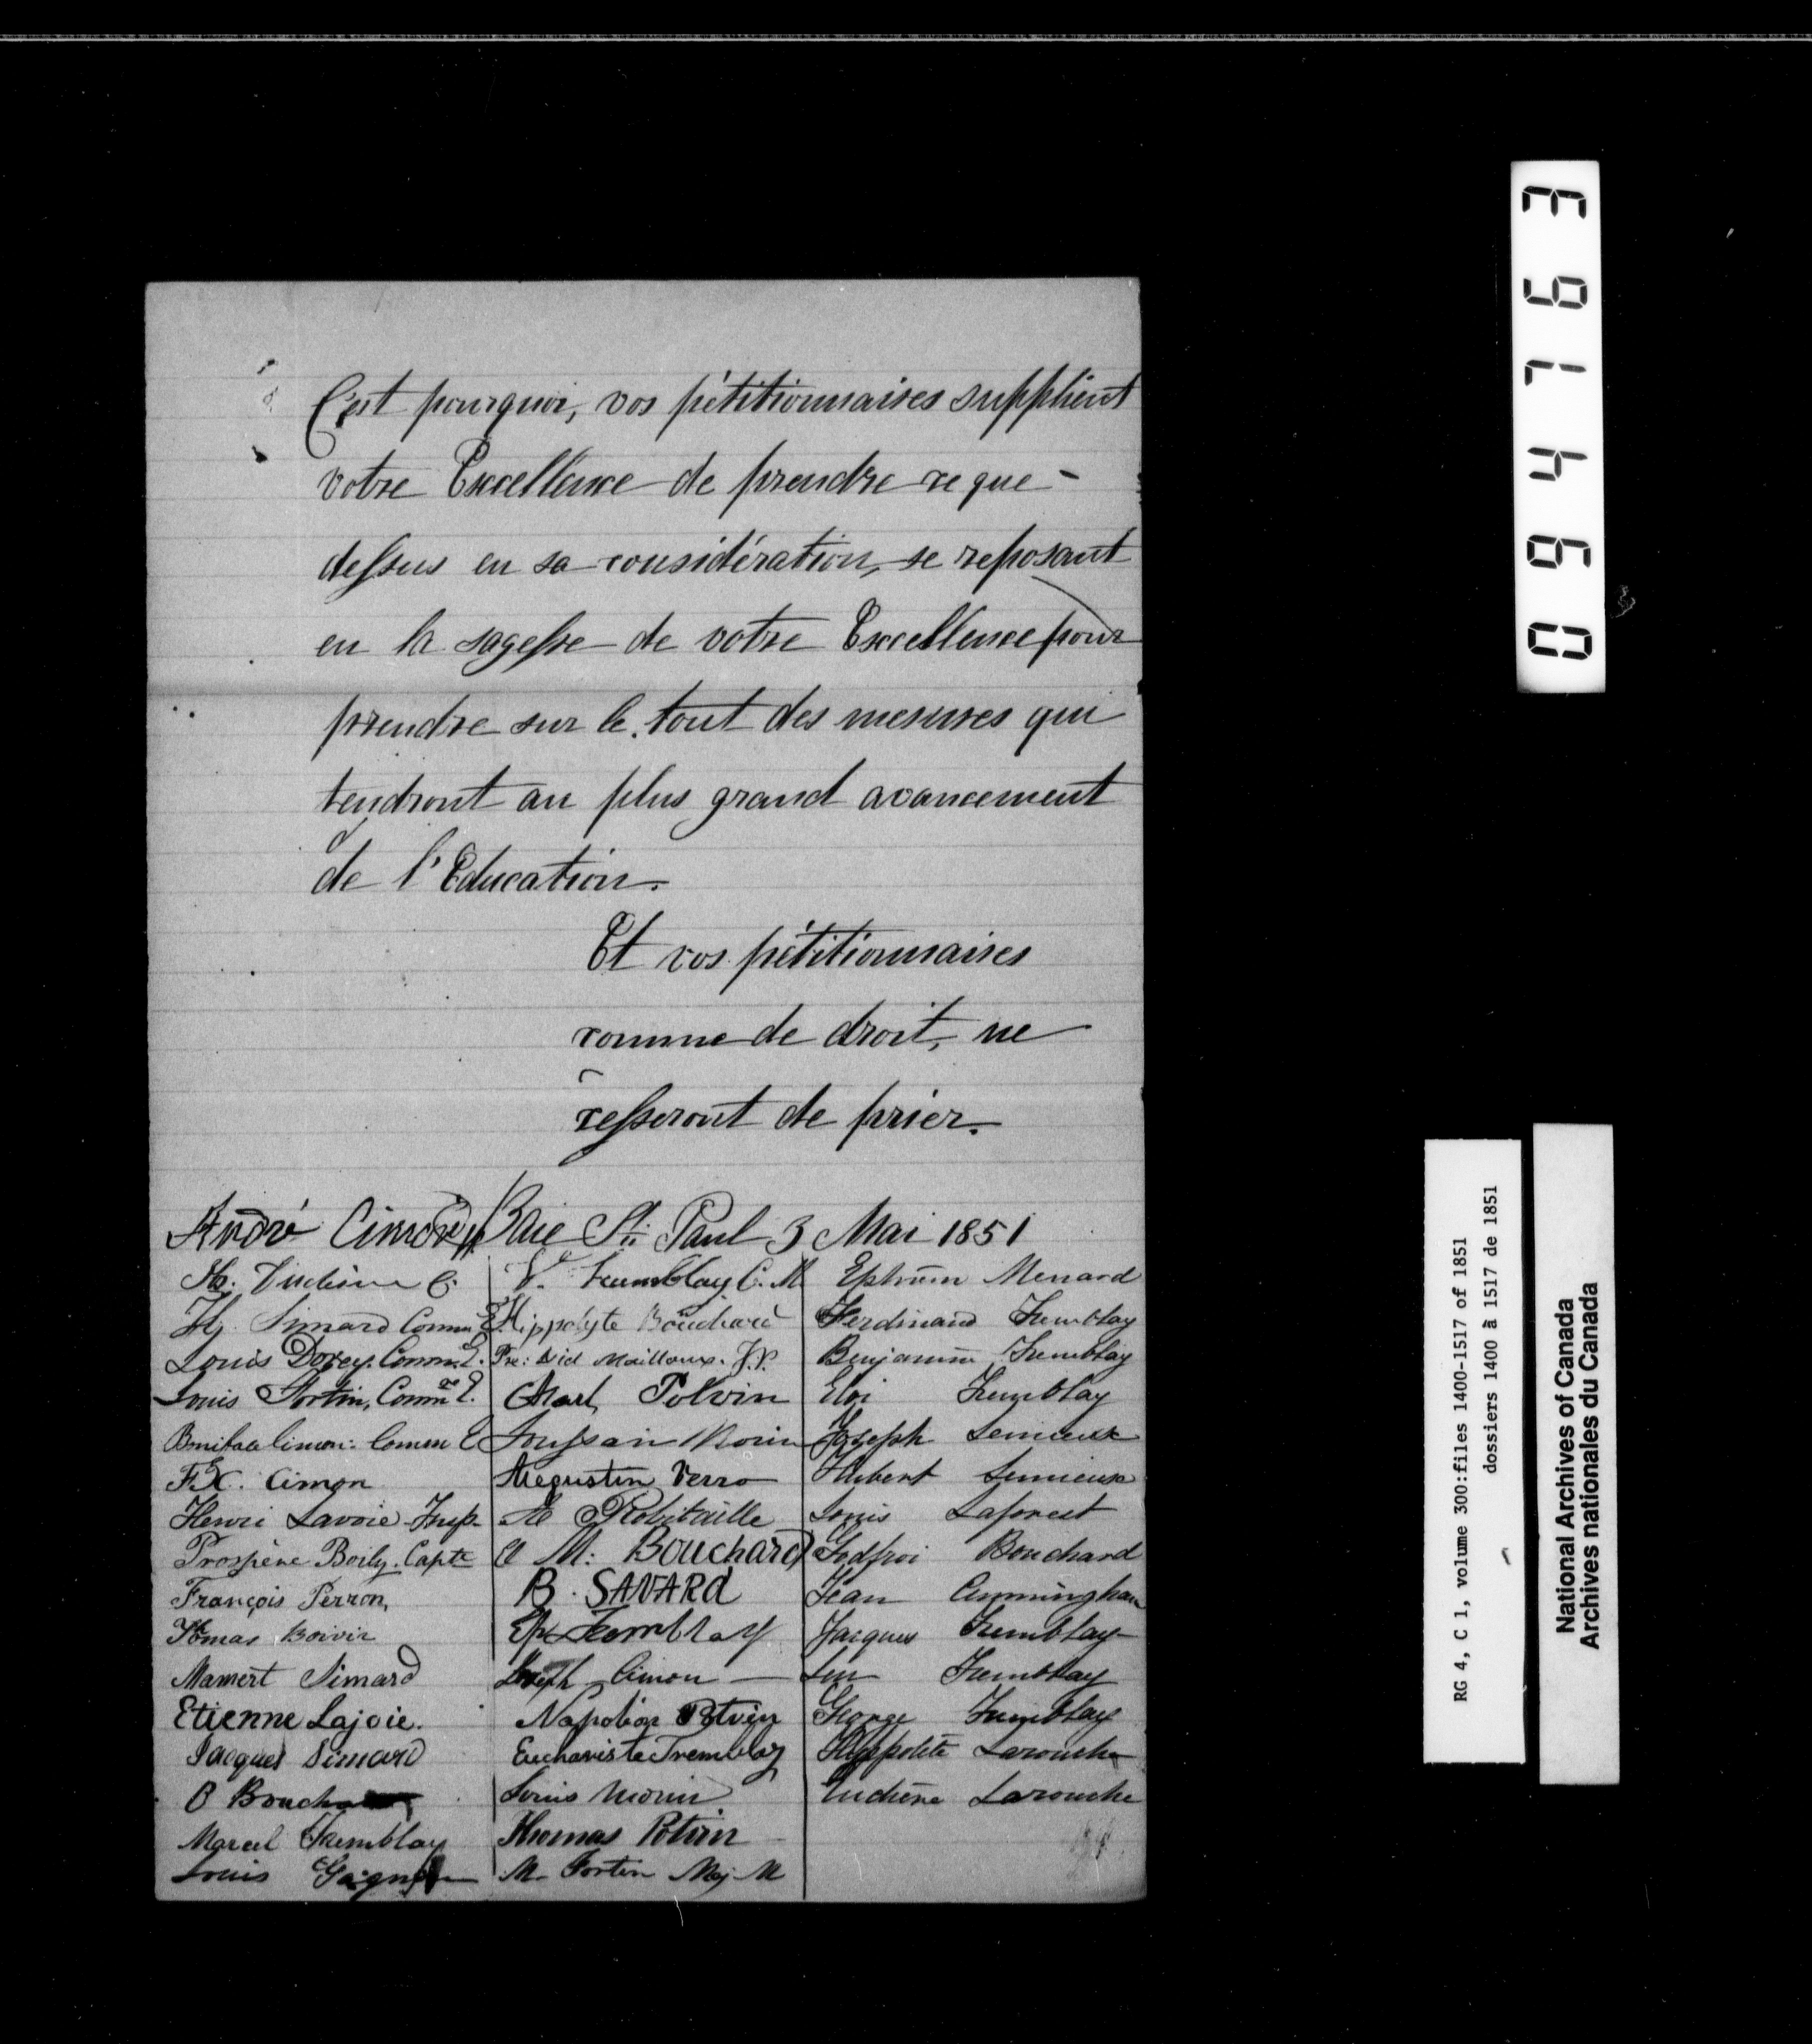 C'est pourquoi, vos pétitionnaires supplient
votre Excellence de prendre ce que -
dessus en sa considération, se reposant
en la sagesse de votre Excellence pour
prendre sur le tout des mesures qui
tendront au plus grand avancement
de l'Education.
Et vos pétitionnaires
comme de droit, ne
cesseront de prier.
André Cimon Baie St. Paul 3 Mai 1851
Simard Comm E.
Louis Comm. E.
Louis Fortin, Commre E.
Boniface Cimon: Comm E
F.X. Cimon
Henri Lavoie Insp.
Prospère Boily. Capte
François Perron,
Thomas Boivin
Mamert Simard
Etienne Lajoie.
Jacques Simard
B
Marcel Tremblay
Louis
V. Tremblay C. M
Hippolyte Bouchard
Mailloux. J.P.
Charl Potvin
Toussain Morin
Augustin Verro
Robitaille
M: Bouchard
B. SAVARd
Ep Tremblay
Joseph Cimon
Napoléon Potvin
Euchariste Tremblay
Louis Morin
Thomas Potvin
M. Fortin Maj. M
Ephrem Menard
Ferdinand Tremblay
Benjamin Tremblay
Eloi Tremblay
Joseph Lemieux
Hubert Lemieux
Louis Laforest
Godfroi Bouchard
Jean Cunningham
Jacques Tremblay
Tremblay
George Tremblay
Hyppolite Larouche
Larouche
094763
RG 4, C 1, volume 300:files 1400-1517 of 1851
dossiers 1400 à 1517 de 1851
National Archives of Canada
Archives nationales du Canada